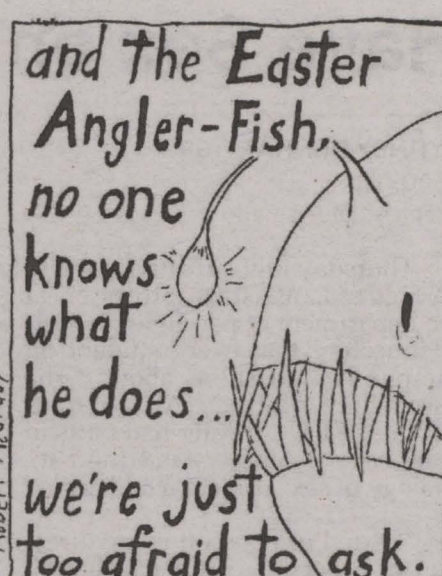 and the Easter
Angler-Fish,
no one
knows
what
he does...
we're just
too afraid to ask.